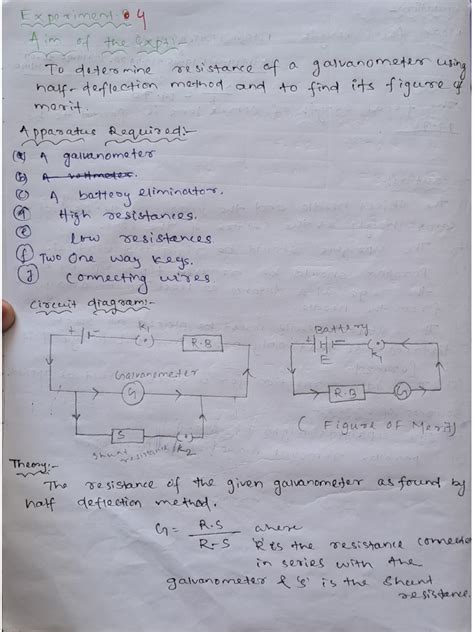 Experiment 04
Aim of the Expt:-
To determine resistance of a galvanometer using
half-deflection method and to find its figure of
merit.
Apparatus Required:-
(a) A galvanometer
(b) A voltmeter.
(c) A battery eliminator.
(d) High resistances.
(e) Low resistances.
(f) Two One way keys.
(g) Connecting wires
Circuit diagram:-
+ - K1 R.B
Galvanometer
G
S
shunt resistance K2
Battery
+ - E K1
R.B G
( Figure of Merit)
Theory:-
The resistance of the given galvanometer as found by
half deflection method.
G = R.S / R-S where
'R' is the resistance connected
in series with the
galvanometer & 's' is the shunt
resistance.